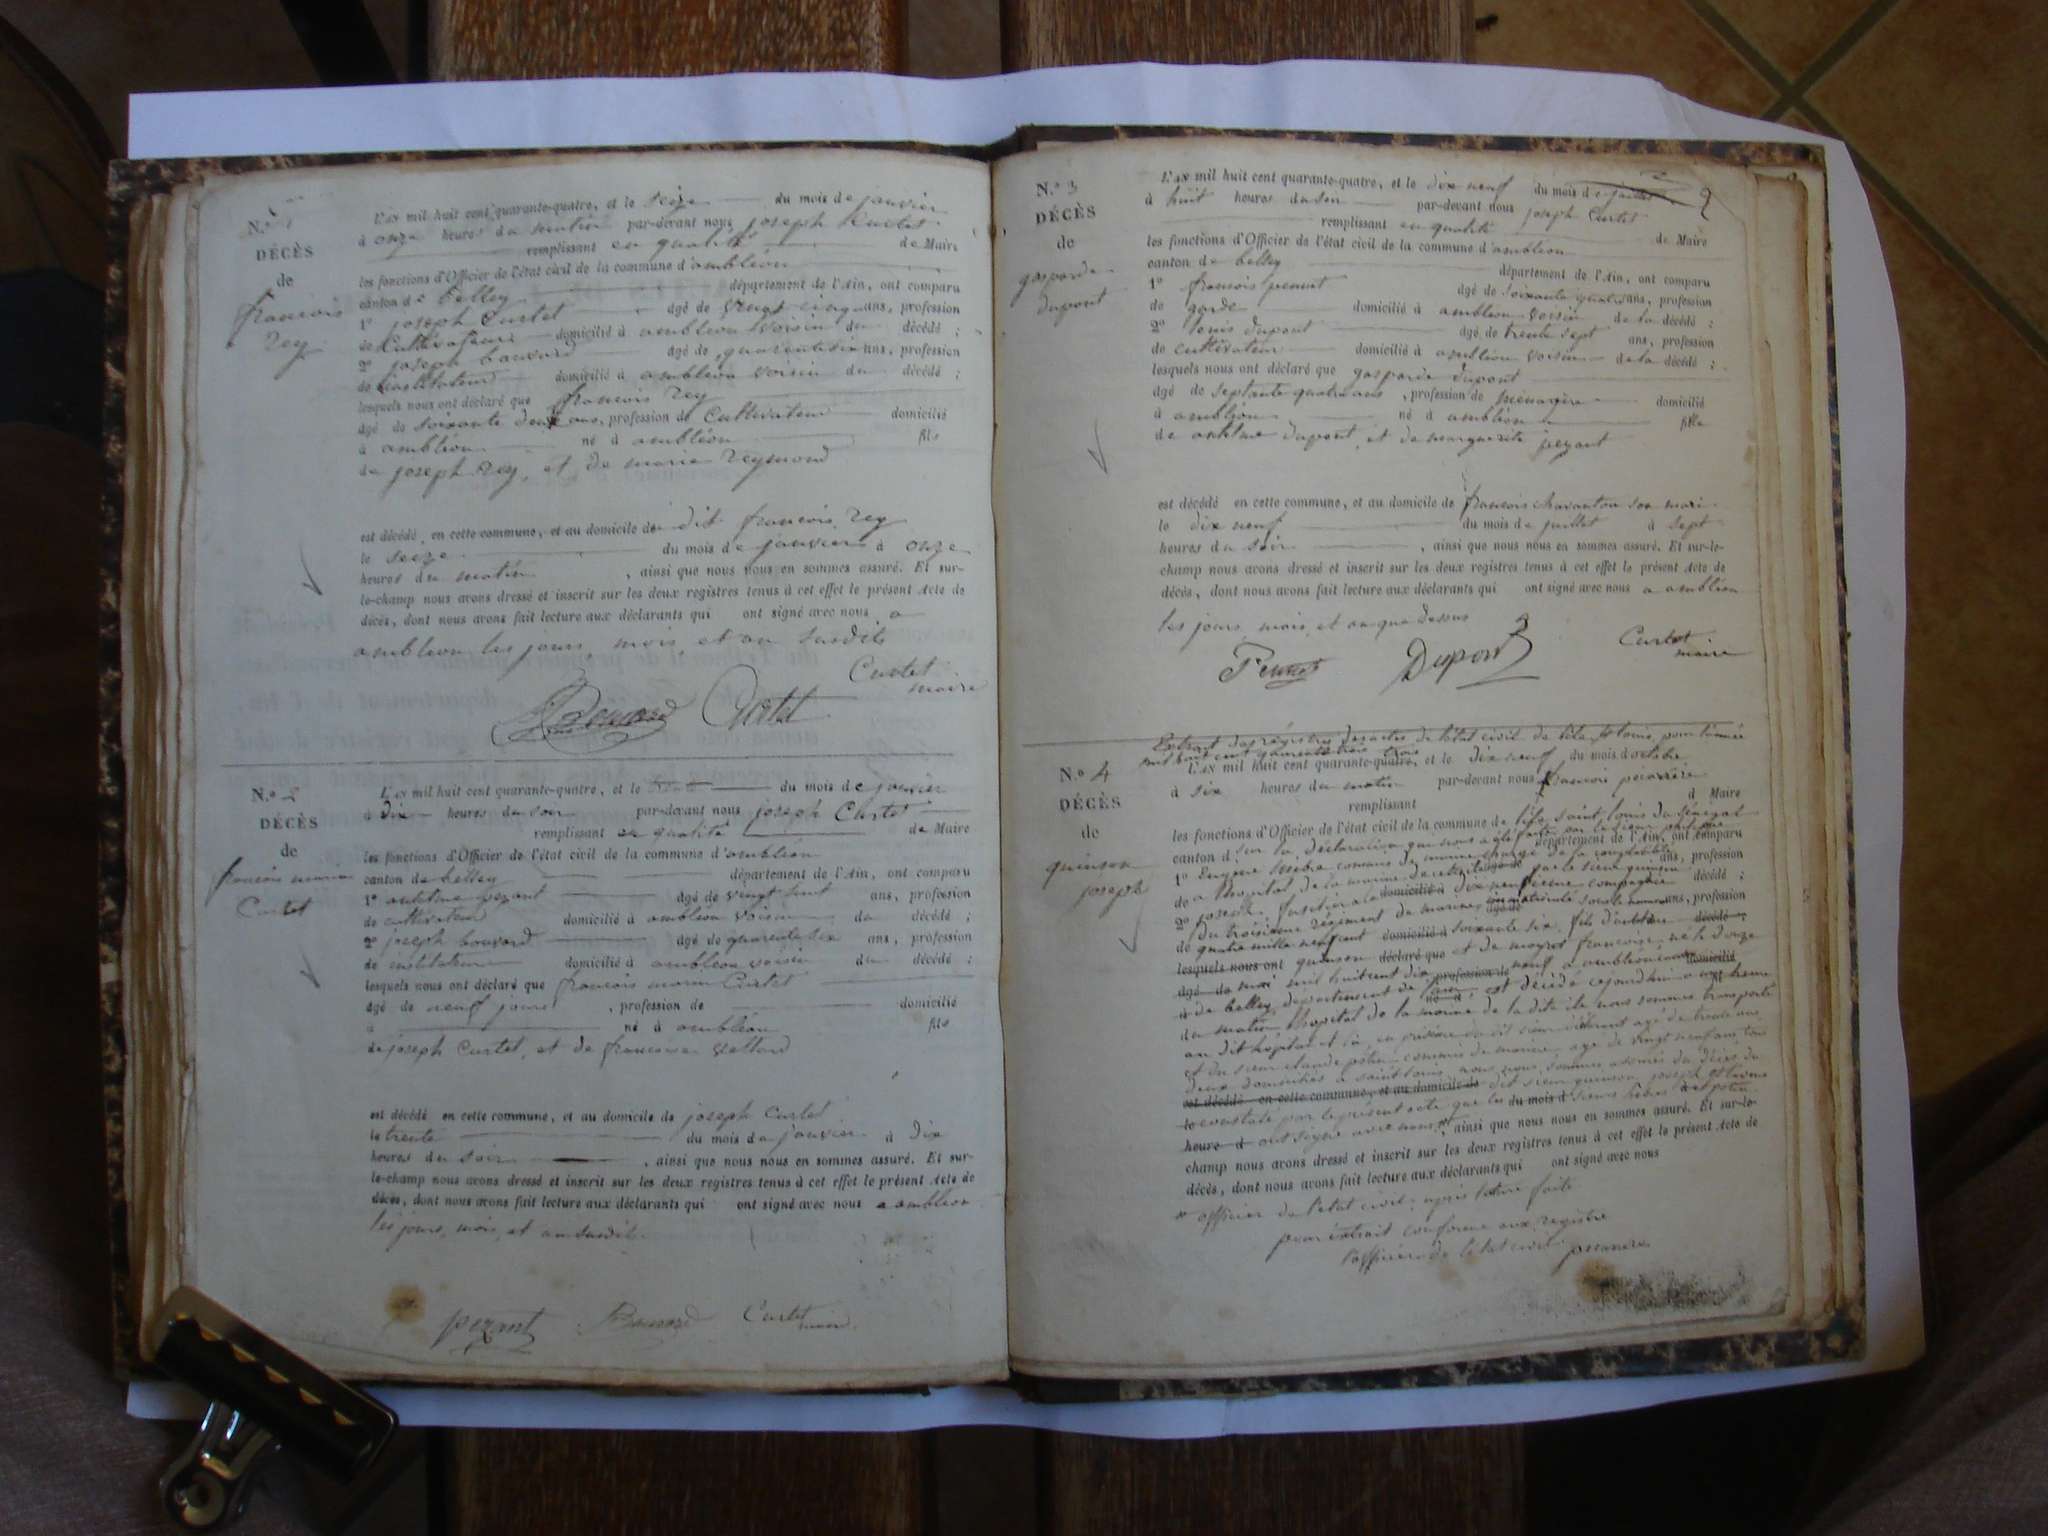 N.º 1
DÉCÈS
de
francois
rey
L'an mil huit cent quarante-quatre, et le seize du mois de janvier
à onze heures du matin par-devant nous joseph Curtet
remplissant en qualité de Maire
les fonctions d'Officier de l'état civil de la commune d'ambléon
canton de belley département de l'Ain, ont comparu
1º joseph Curtet âgé de vingt cinq ans, profession
de Cultivateur domicilié à ambleon voisin du décédé ;
2º joseph bouvard âgé de quarente six ans, profession
de instituteur domicilié à ambleon voisin du décédé ;
lesquels nous ont déclaré que francois rey
âgé de soixante deux ans, profession de Cultivateur domicilié
à ambléon né à ambléon fils
de joseph rey, et de marie reymond
est décédé en cette commune, et au domicile de dit francois rey
le seize du mois de janvier à onze
heures du matin , ainsi que nous nous en sommes assuré. Et sur-
le-champ nous avons dressé et inscrit sur les deux registres tenus à cet effet le présent Acte de
décès, dont nous avons fait lecture aux déclarants qui ont signé avec nous a
ambleon les jours, mois, et an susdits
Curtet
maire
Bouvard Curtet
N.º 2
DÉCÈS
de
francois marin
Curtet
L'an mil huit cent quarante-quatre, et le trente du mois de janvier
à Dix heures du soir par-devant nous joseph Curtet
remplissant en qualité de Maire
les fonctions d'Officier de l'état civil de la commune d'ambléon
canton de belley département de l'Ain, ont comparu
1º antelme pezant âgé de vingt huit ans, profession
de cultivateur domicilié à ambléon voisin du décédé ;
2º joseph bouvard âgé de quarente six ans, profession
de instituteur domicilié à ambleon voisin du décédé ;
lesquels nous ont déclaré que francois marin Curtet
âgé de neuf jours , profession de domicilié
à né à ambléon fils
de joseph Curtet, et de francoise
est décédé en cette commune, et au domicile de joseph Curtet
le trente du mois de janvier à Dix
heures du soir , ainsi que nous nous en sommes assuré. Et sur-
le-champ nous avons dressé et inscrit sur les deux registres tenus à cet effet le présent Acte de
décès, dont nous avons fait lecture aux déclarants qui ont signé avec nous a ambleon
les jours, mois, et an susdit
pezant Bouvard Curtet
maire
2
N.º 3
DÉCÈS
de
gasparde
dupont
L'an mil huit cent quarante-quatre, et le dix neuf du mois de juillet
à huit heures du soir par-devant nous joseph Curtet
remplissant en qualité de Maire
les fonctions d'Officier de l'état civil de la commune d'ambléon
canton de belley département de l'Ain, ont comparu
1º francois âgé de soixante quatre ans, profession
de garde domicilié à ambléon voisin de la décédé ;
2º louis dupont âgé de trente sept ans, profession
de cultivateur domicilié à ambléon voisin de la décédé ;
lesquels nous ont déclaré que gasparde dupont
âgé de septante quatre ans , profession de menagère domicilié
à ambléon né à ambléon fille
de antelme dupont, et de marguerite pezant
est décédé en cette commune, et au domicile de francois son mari
le dix neuf du mois de juillet à sept
heures du soir , ainsi que nous nous en sommes assuré. Et sur-le-
champ nous avons dressé et inscrit sur les deux registres tenus à cet effet le présent Acte de
décès, dont nous avons fait lecture aux déclarants qui ont signé avec nous a ambléon
les jours, mois, et an que dessus
Dupont Curtet
maire
Extrait des régistres des actes de l'état civil de l'ile St louis, pour l'année
mil huit cent quarante trois
N.º 4
DÉCÈS
de
quinson
joseph
L'an mil huit cent quarante-quatre, trois et le dix neuf du mois d'octobre
à six heures du matin par-devant nous francois
remplissant d Maire
les fonctions d'Officier de l'état civil de la commune de l'ile saint louis du Sénégal
canton d sur la déclaration que nous a été faite par le sieur
département de l'Ain, ont comparu
1º Eugene commis de marine chargé de la comptabilité ans, profession
de l'hopital de la marine que le sieur quinson
domicilié à décédé ;
2º joseph fusilier à la dix neuvieme compagnie
du troisieme régiment de marine immatriculé sous le numero ans, profession
de quatre mille neuf cent soixante six, fils d'antelme domicilié à décédé ;
lesquels nous ont quinson déclaré que et de francoise, né le onze
âgé de mai mil huit cent dix profession de neuf a ambléon domicilié
à de belley, département de l'ain né à est décédé aujourd'hui a heure
du matin l'hopital de la marine de la dite ile nous sommes transporté
au dit hopital et là, en présence du dit sieur agé de trente ans
et du sieur claude commis de marine, agé de vingt neuf ans, tous
deux domiciliés a saint louis, nous nous sommes assurés du décès du
est décédé en cette commune, et au domicile de dit sieur quinson joseph
le constaté par le présent acte que les du mois d sieurs
heure d ont signé avec nous , ainsi que nous nous en sommes assuré. Et sur-le-
champ nous avons dressé et inscrit sur les deux registres tenus à cet effet le présent Acte de
décès, dont nous avons fait lecture aux déclarants qui ont signé avec nous
officier de l'état civil. après lecture faite
pour extrait conforme aux registre
l'officier de l'état civil